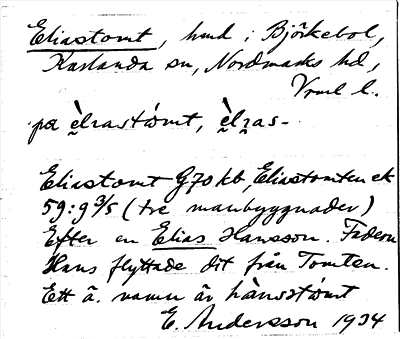 Eliastomt, hmd i Björkebol,
Karlanda sn, Nordmarks hd,
Vrml l.
pa èlıastòmt, èlıas-
Eliastomt G70 kb, Eliastomten ek
59:9 3/5 (tre manbyggnader)
Efter en Elias Hansson. Fadern
Hans flyttade dit från Tomten.
Ett ä. namn är hànsstòmt
E. Andersson 1934